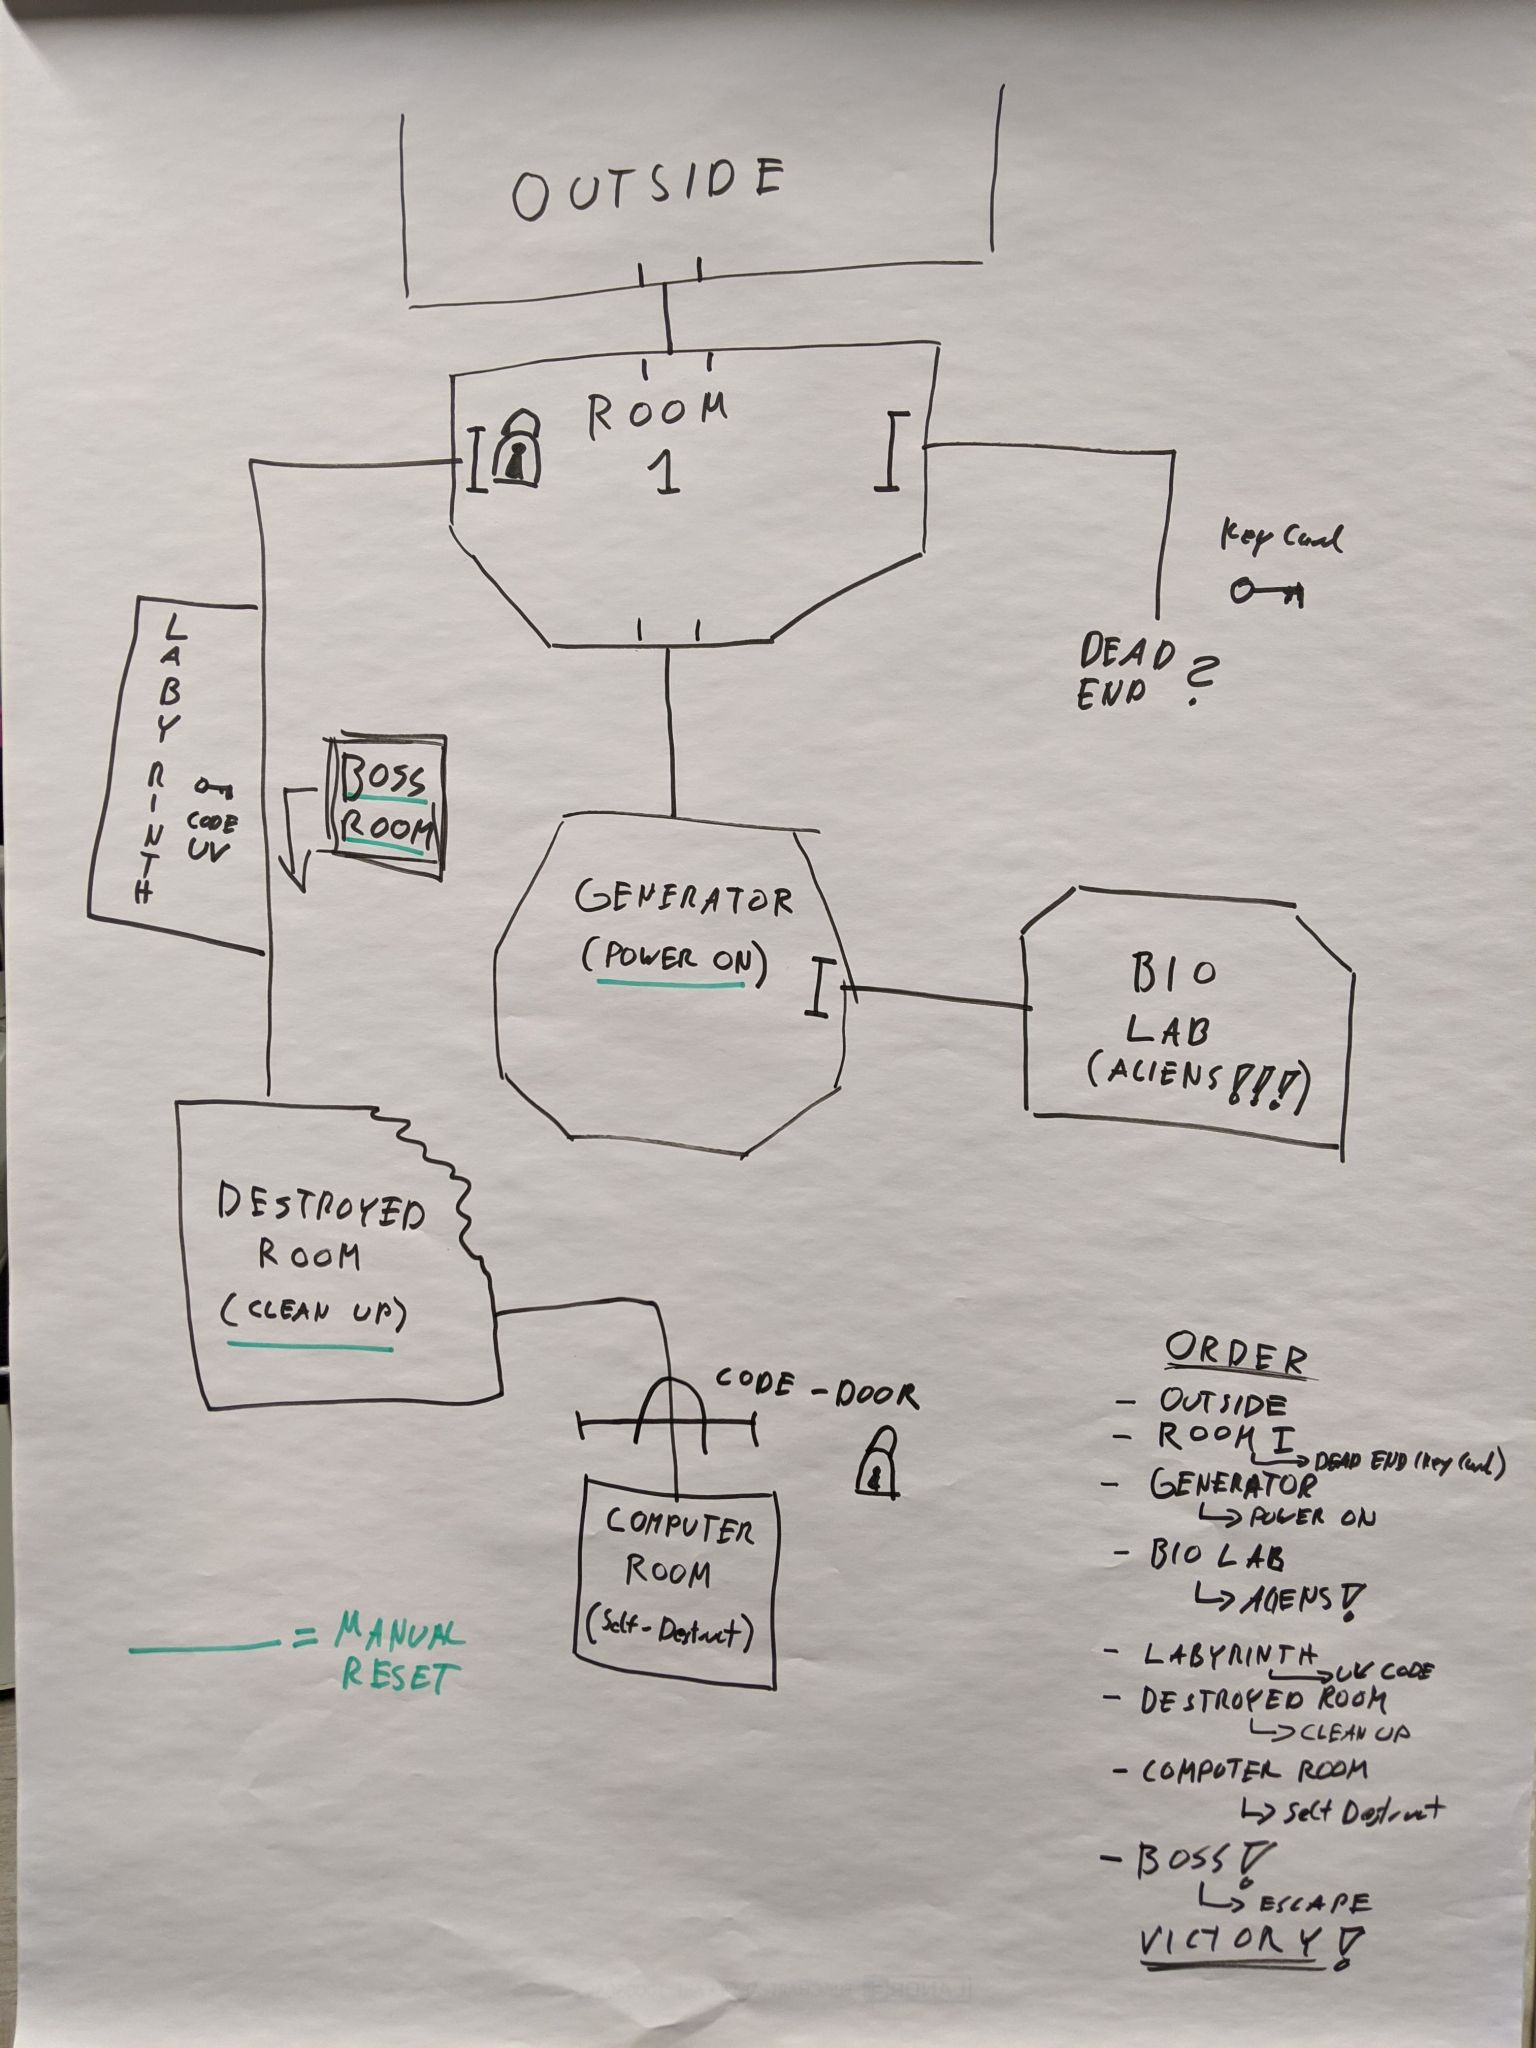 OUTSIDE
ROOM
1
Key Card
DEAD
END ?
LABYRINTH
CODE
UV
BOSS
ROOM
GENERATOR
(POWER ON)
BIO
LAB
(ALIENS!!!)
DESTROYED
ROOM
(CLEAN UP)
CODE-DOOR
COMPUTER
ROOM
(Self-Destruct)
= MANUAL
RESET
ORDER
- OUTSIDE
- ROOM I
DEAD END (Key Card)
- GENERATOR
POWER ON
- BIO LAB
ALIENS!
- LABYRINTH
UV CODE
- DESTROYED ROOM
CLEAN UP
- COMPUTER ROOM
Self Destruct
- BOSS!
ESCAPE
VICTORY!